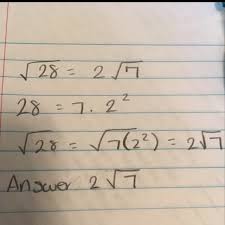 √28 = 2√7
28 = 7 · 2²
√28 = √7(2²) = 2√7
Answer 2√7